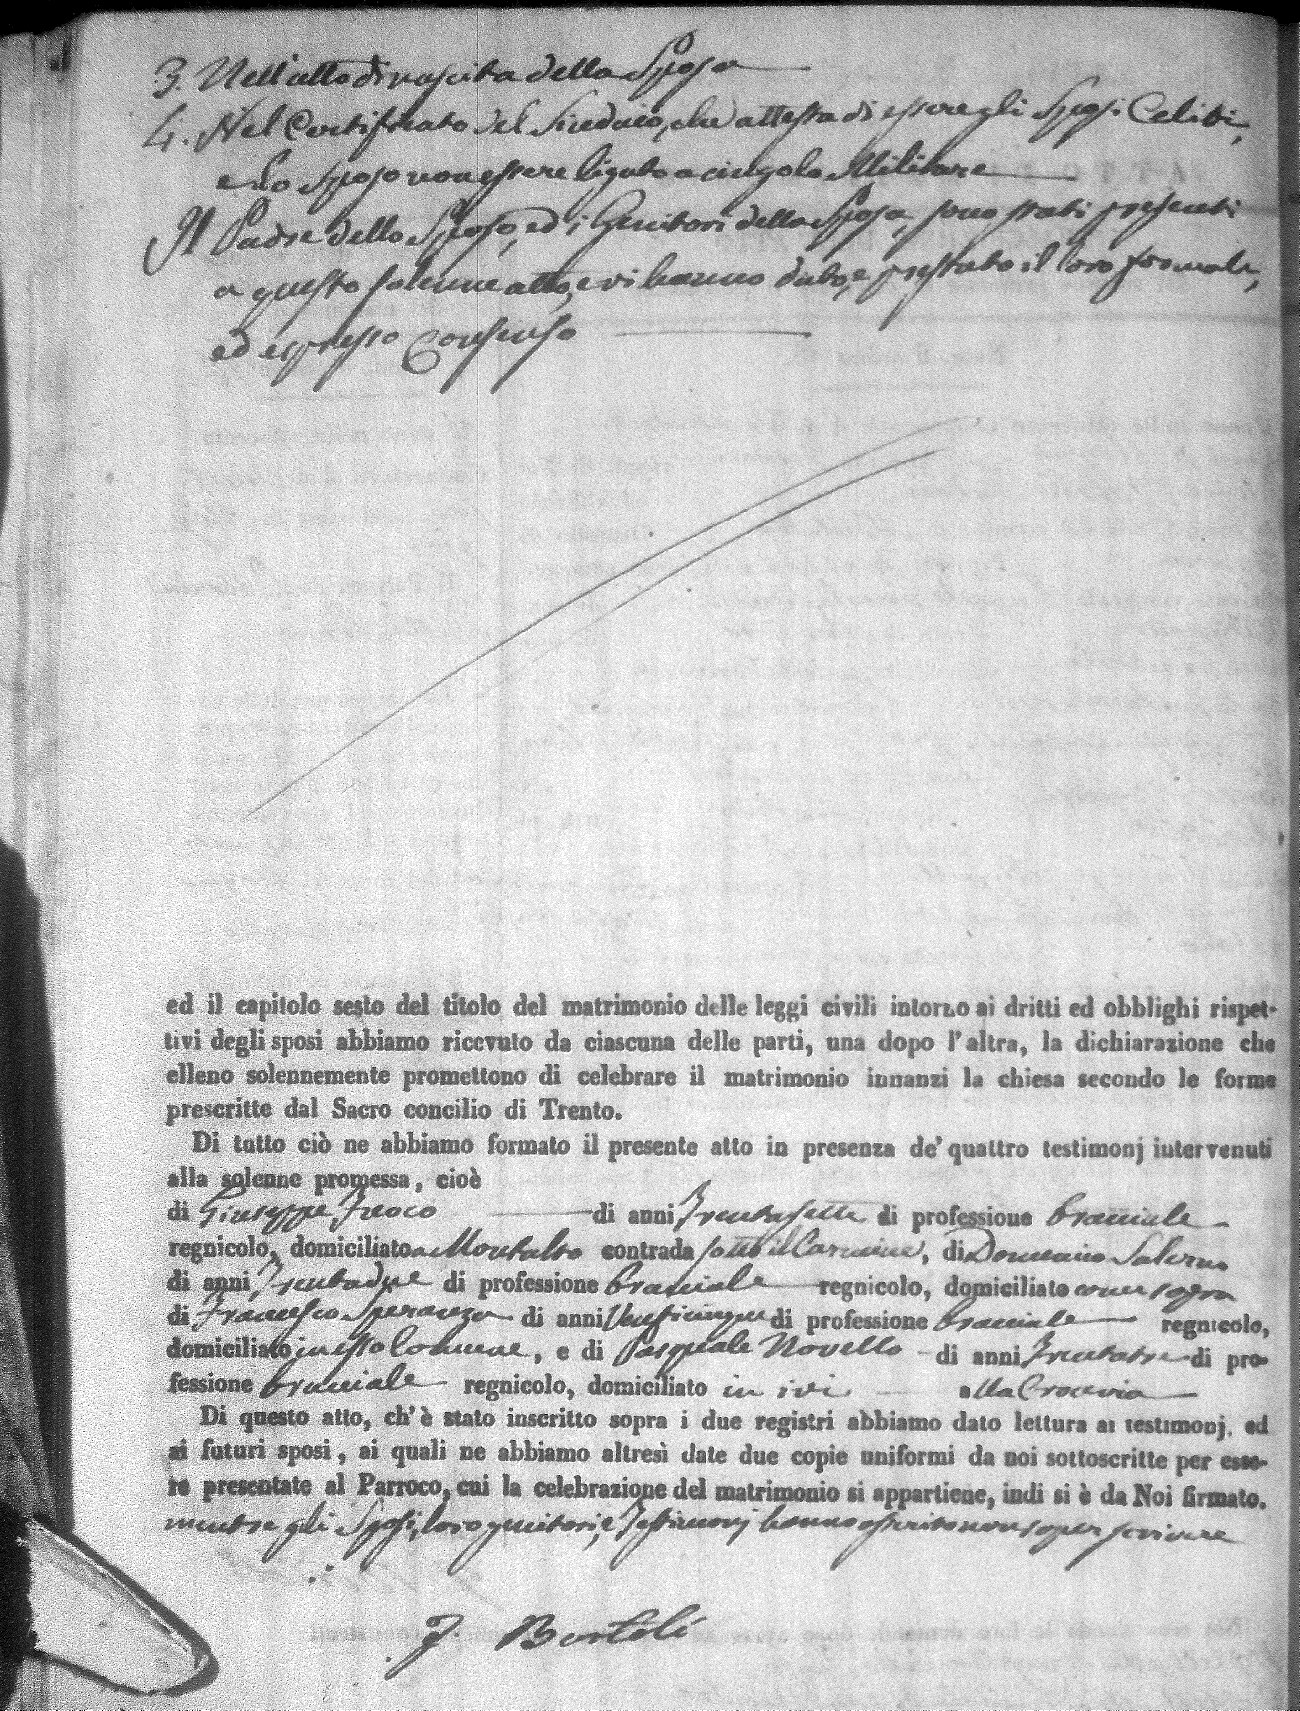 3. Nell'atto di nascita della Sposa
4. Nel Certificato del Sindaco, che attesta di essere gli Sposi Celibi,
e lo Sposo non essere ligato a cingolo Militare
Il Padre dello Sposo, ed i Genitori della Sposa, sono stati presenti
a questo solenne atto, e vi hanno dato, e prestato il loro formale,
ed espresso Consenso
ed il capitolo sesto del titolo del matrimonio delle leggi civili intorno ai dritti ed obblighi rispet-
tivi degli sposi abbiamo ricevuto da ciascuna delle parti, una dopo l'altra, la dichiarazione che
elleno solennemente promettono di celebrare il matrimonio innanzi la chiesa secondo le forme
prescritte dal Sacro concilio di Trento.
Di tutto ciò ne abbiamo formato il presente atto in presenza de' quattro testimonj intervenuti
alla solenne promessa, cioè
di Giuseppe Fuoco di anni Trentasette di professione bracciale
regnicolo, domiciliato a Montalto contrada sotto il Carmine, di Domenico Salerno
di anni Trentadue di professione bracciale regnicolo, domiciliato come sopra
di Francesco Speranza di anni Venticinque di professione bracciale regnicolo,
domiciliato in esso Comune, e di Pasquale Novello di anni Trentatre di pro-
fessione bracciale regnicolo, domiciliato in ivi alla Crocevia
Di questo atto, ch'è stato inscritto sopra i due registri abbiamo dato lettura ai testimonj, ed
ai futuri sposi, ai quali ne abbiamo altresì date due copie uniformi da noi sottoscritte per esse-
re presentate al Parroco, cui la celebrazione del matrimonio si appartiene, indi si è da Noi firmato.
mentre gli Sposi, loro genitori, e Testimonj hanno asserito non saper scrivere